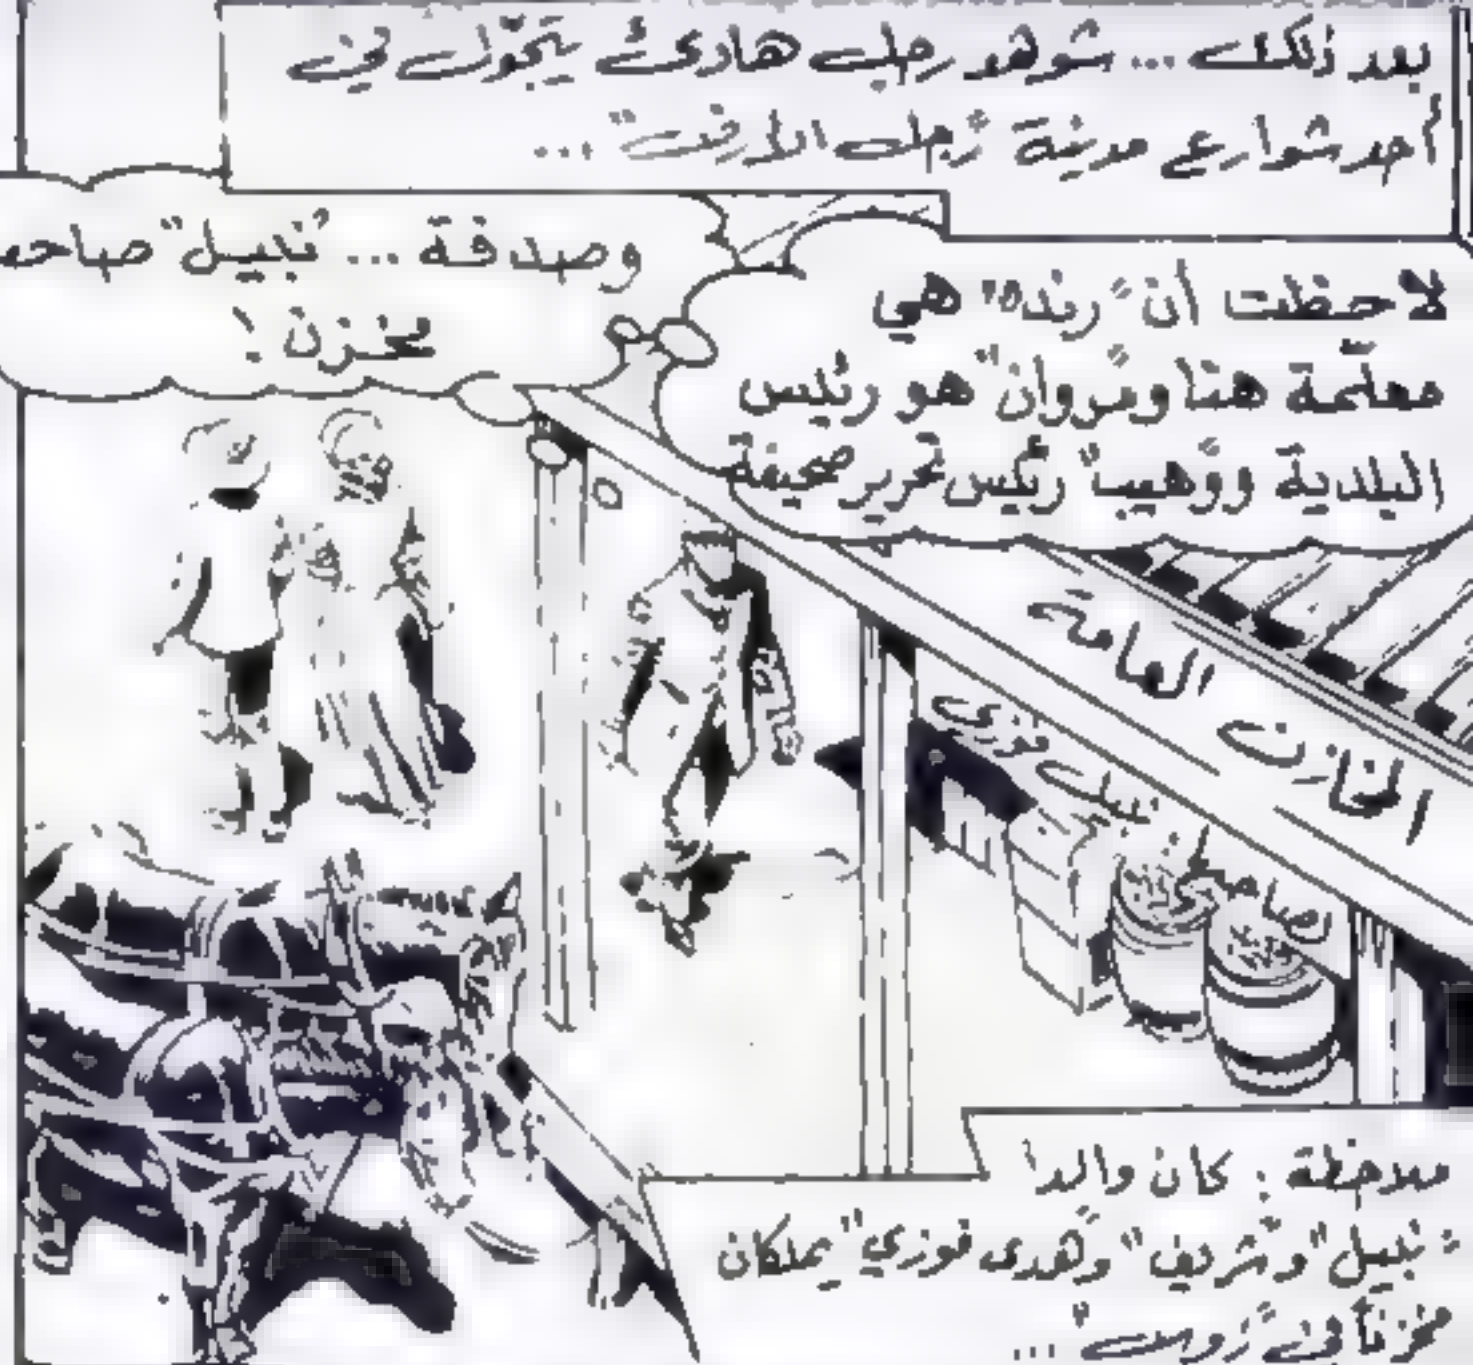 بعد ذلك ... شوهد رجل هادئ يتجوّل في
أحد شوارع مدينة "رجل الأرض" ...
لاحظت أن "رنده" هي
معلّمة هنا و"مروان" هو رئيس
البلدية و"وهيب" رئيس تحرير صحيفة
وصدفة ... "نبيل" صاحب
مخزن !
المخازن العامة
لصاحبها: نبيل فوزي
ملاحظة : كان والدا
"نبيل" و"شريف" و"هدى فوزي" يملكان
مخزناً في ...